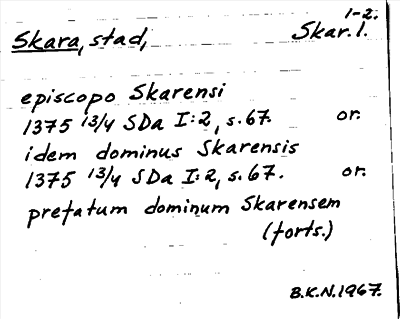 1-2.
Skara, stad, Skar. l.
episcopo Skarensi
1375 13/4 SDa I:2, s.67. or.
idem dominus Skarensis
1375 13/4 SDa I:2, s.67. or.
prefatum dominum Skarensem
(forts.)
B.K.N.1967.